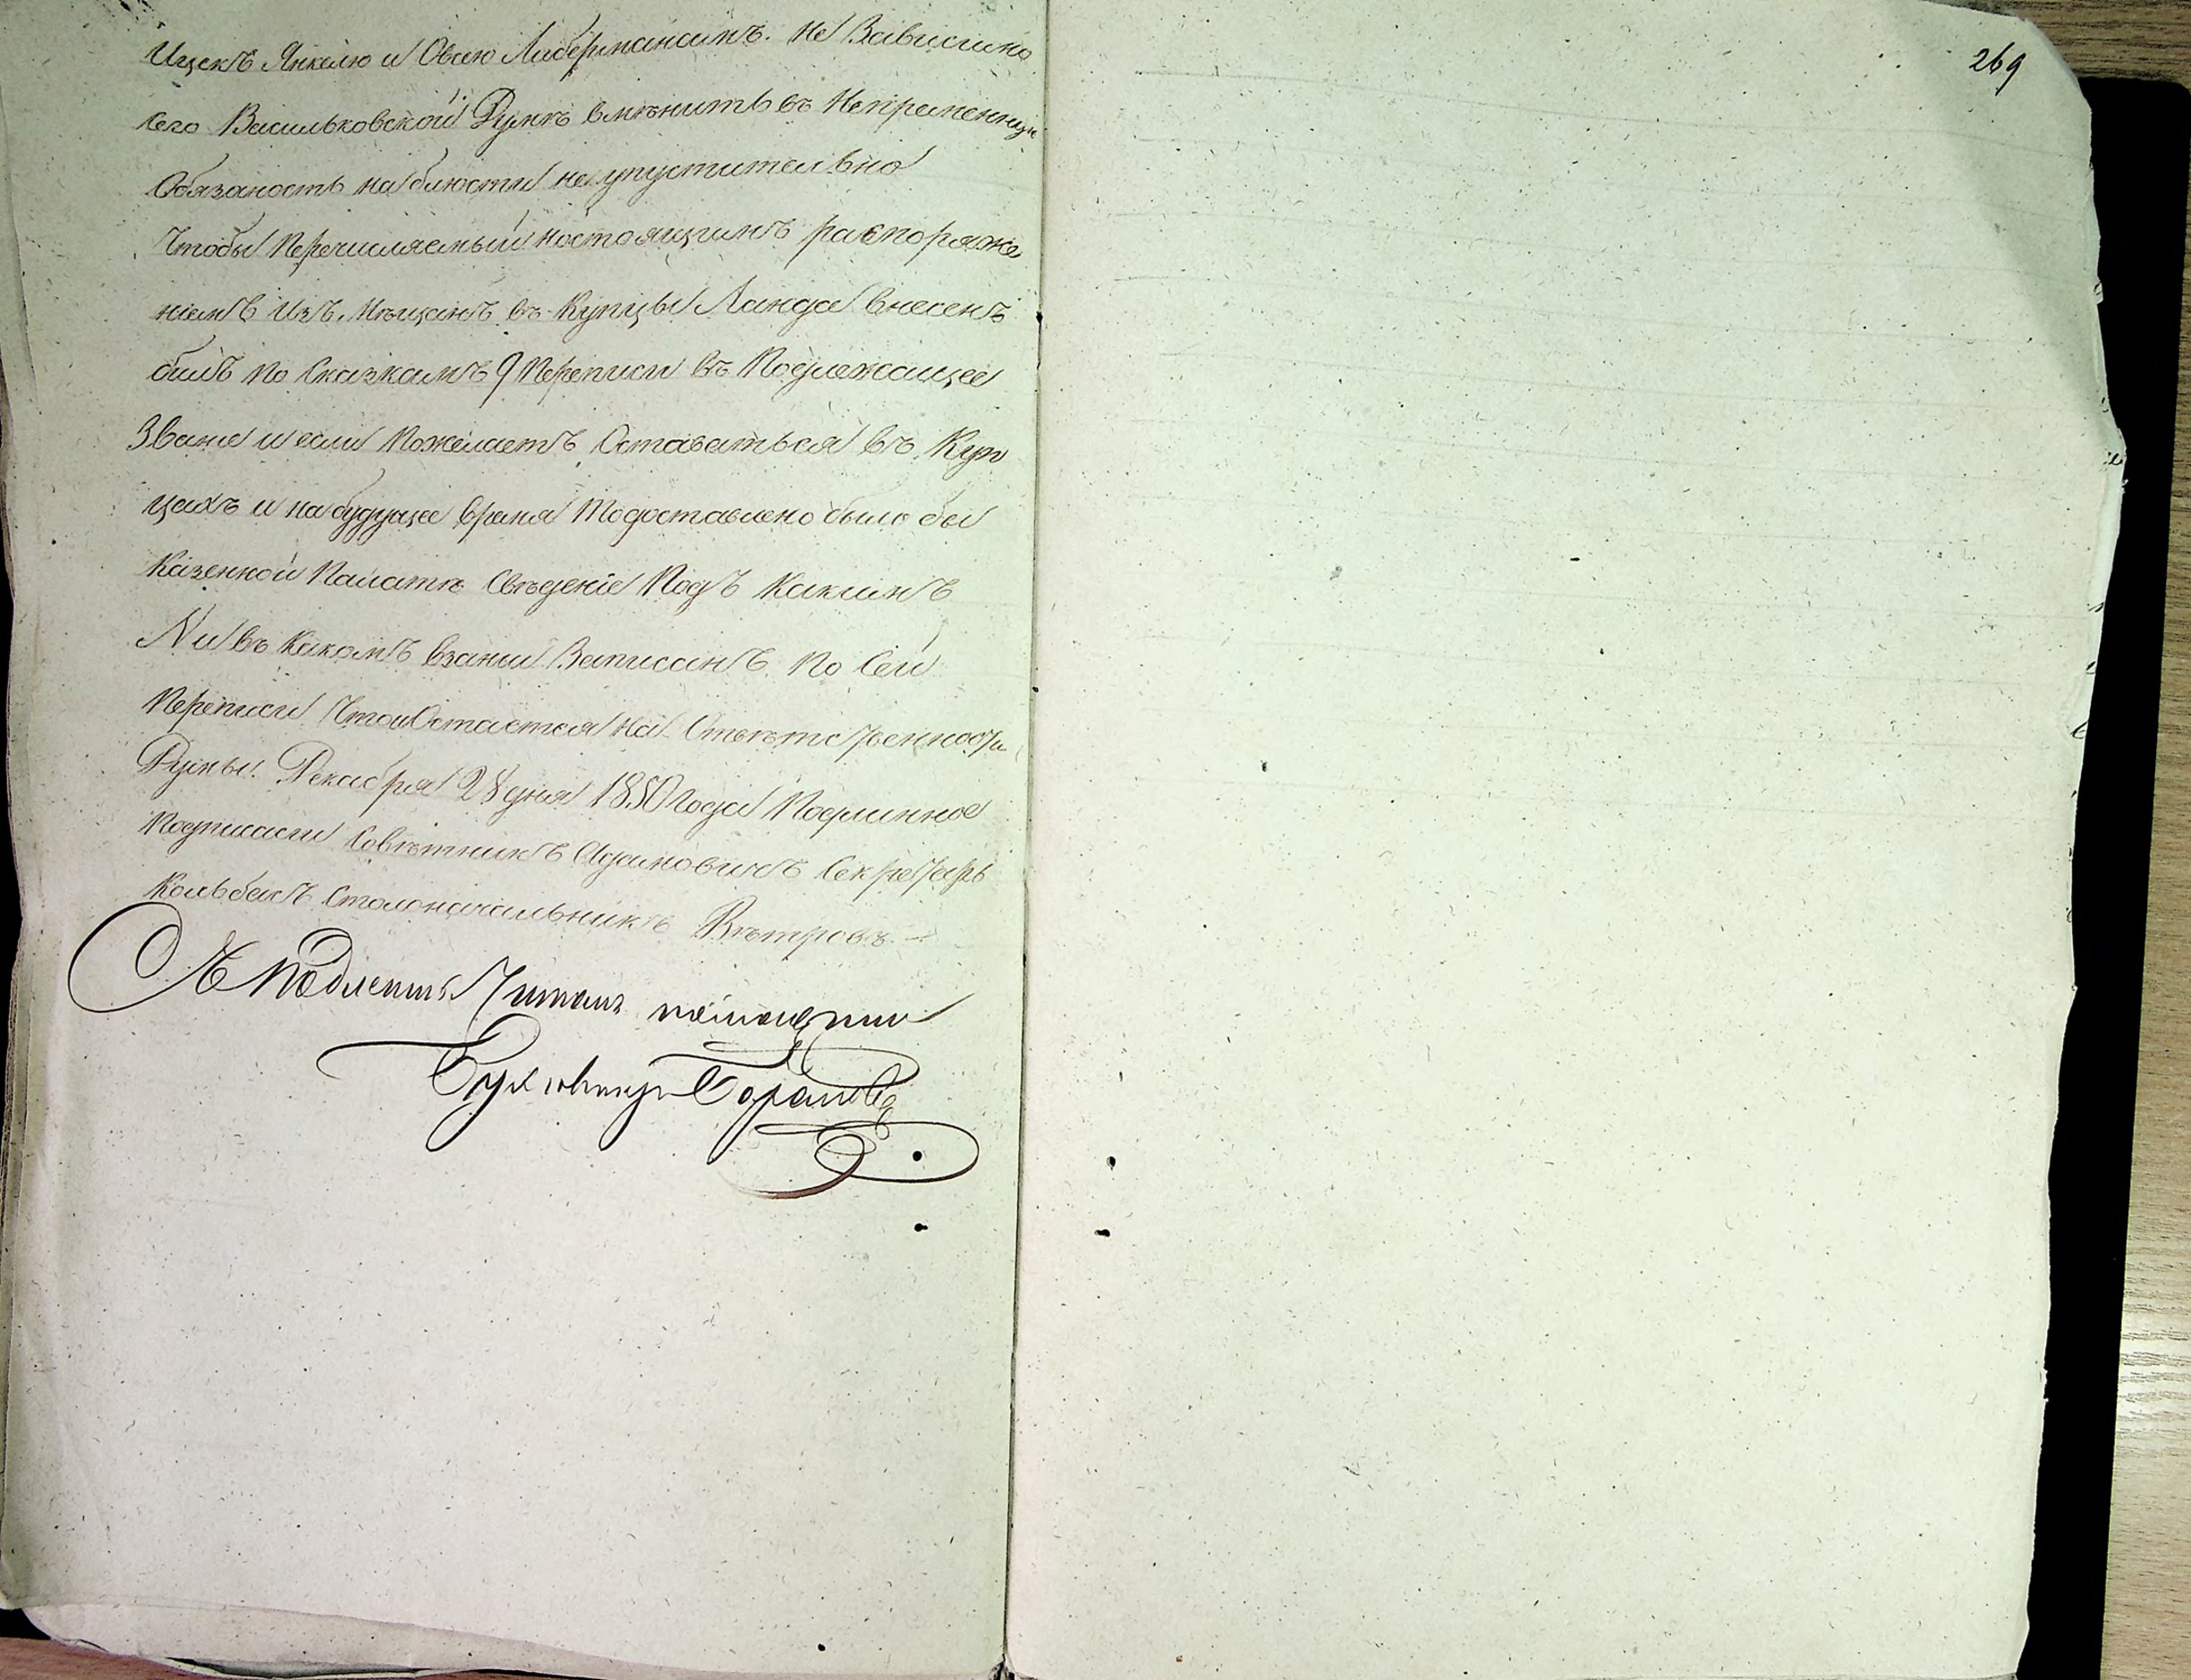 Ицекѣ Янкелю и Овсею Либерманамъ. Не Зависимо
сего Васильковской Думѣ вмѣнить въ Непременную
Обязаность наблюсти неупустительно
Чтобы Перечисляемый настоящимъ распоряже
ніемъ Изъ Мѣщанъ въ Купцы Ланда внесенъ
билъ по Сказкамъ 9 Переписи въ Подлежащее
Звание и если Пожелаетъ Оставаться въ Куп
цахъ и на будущее время То доставлено было бы
Казенной Палатѣ Свѣденіе Подъ Какимъ
№ и въ Какомъ взании Записанъ По Сей
Переписи Что и Остается на Ответственности
Думы. Декабря 28 дня 1850 года Подлинное
Подписали Совѣтникъ Адамовичъ Секретарь
Кольбекъ Столоначальникъ Вѣтровъ. —
Съ Подленнымъ Читалъ помощникъ
269